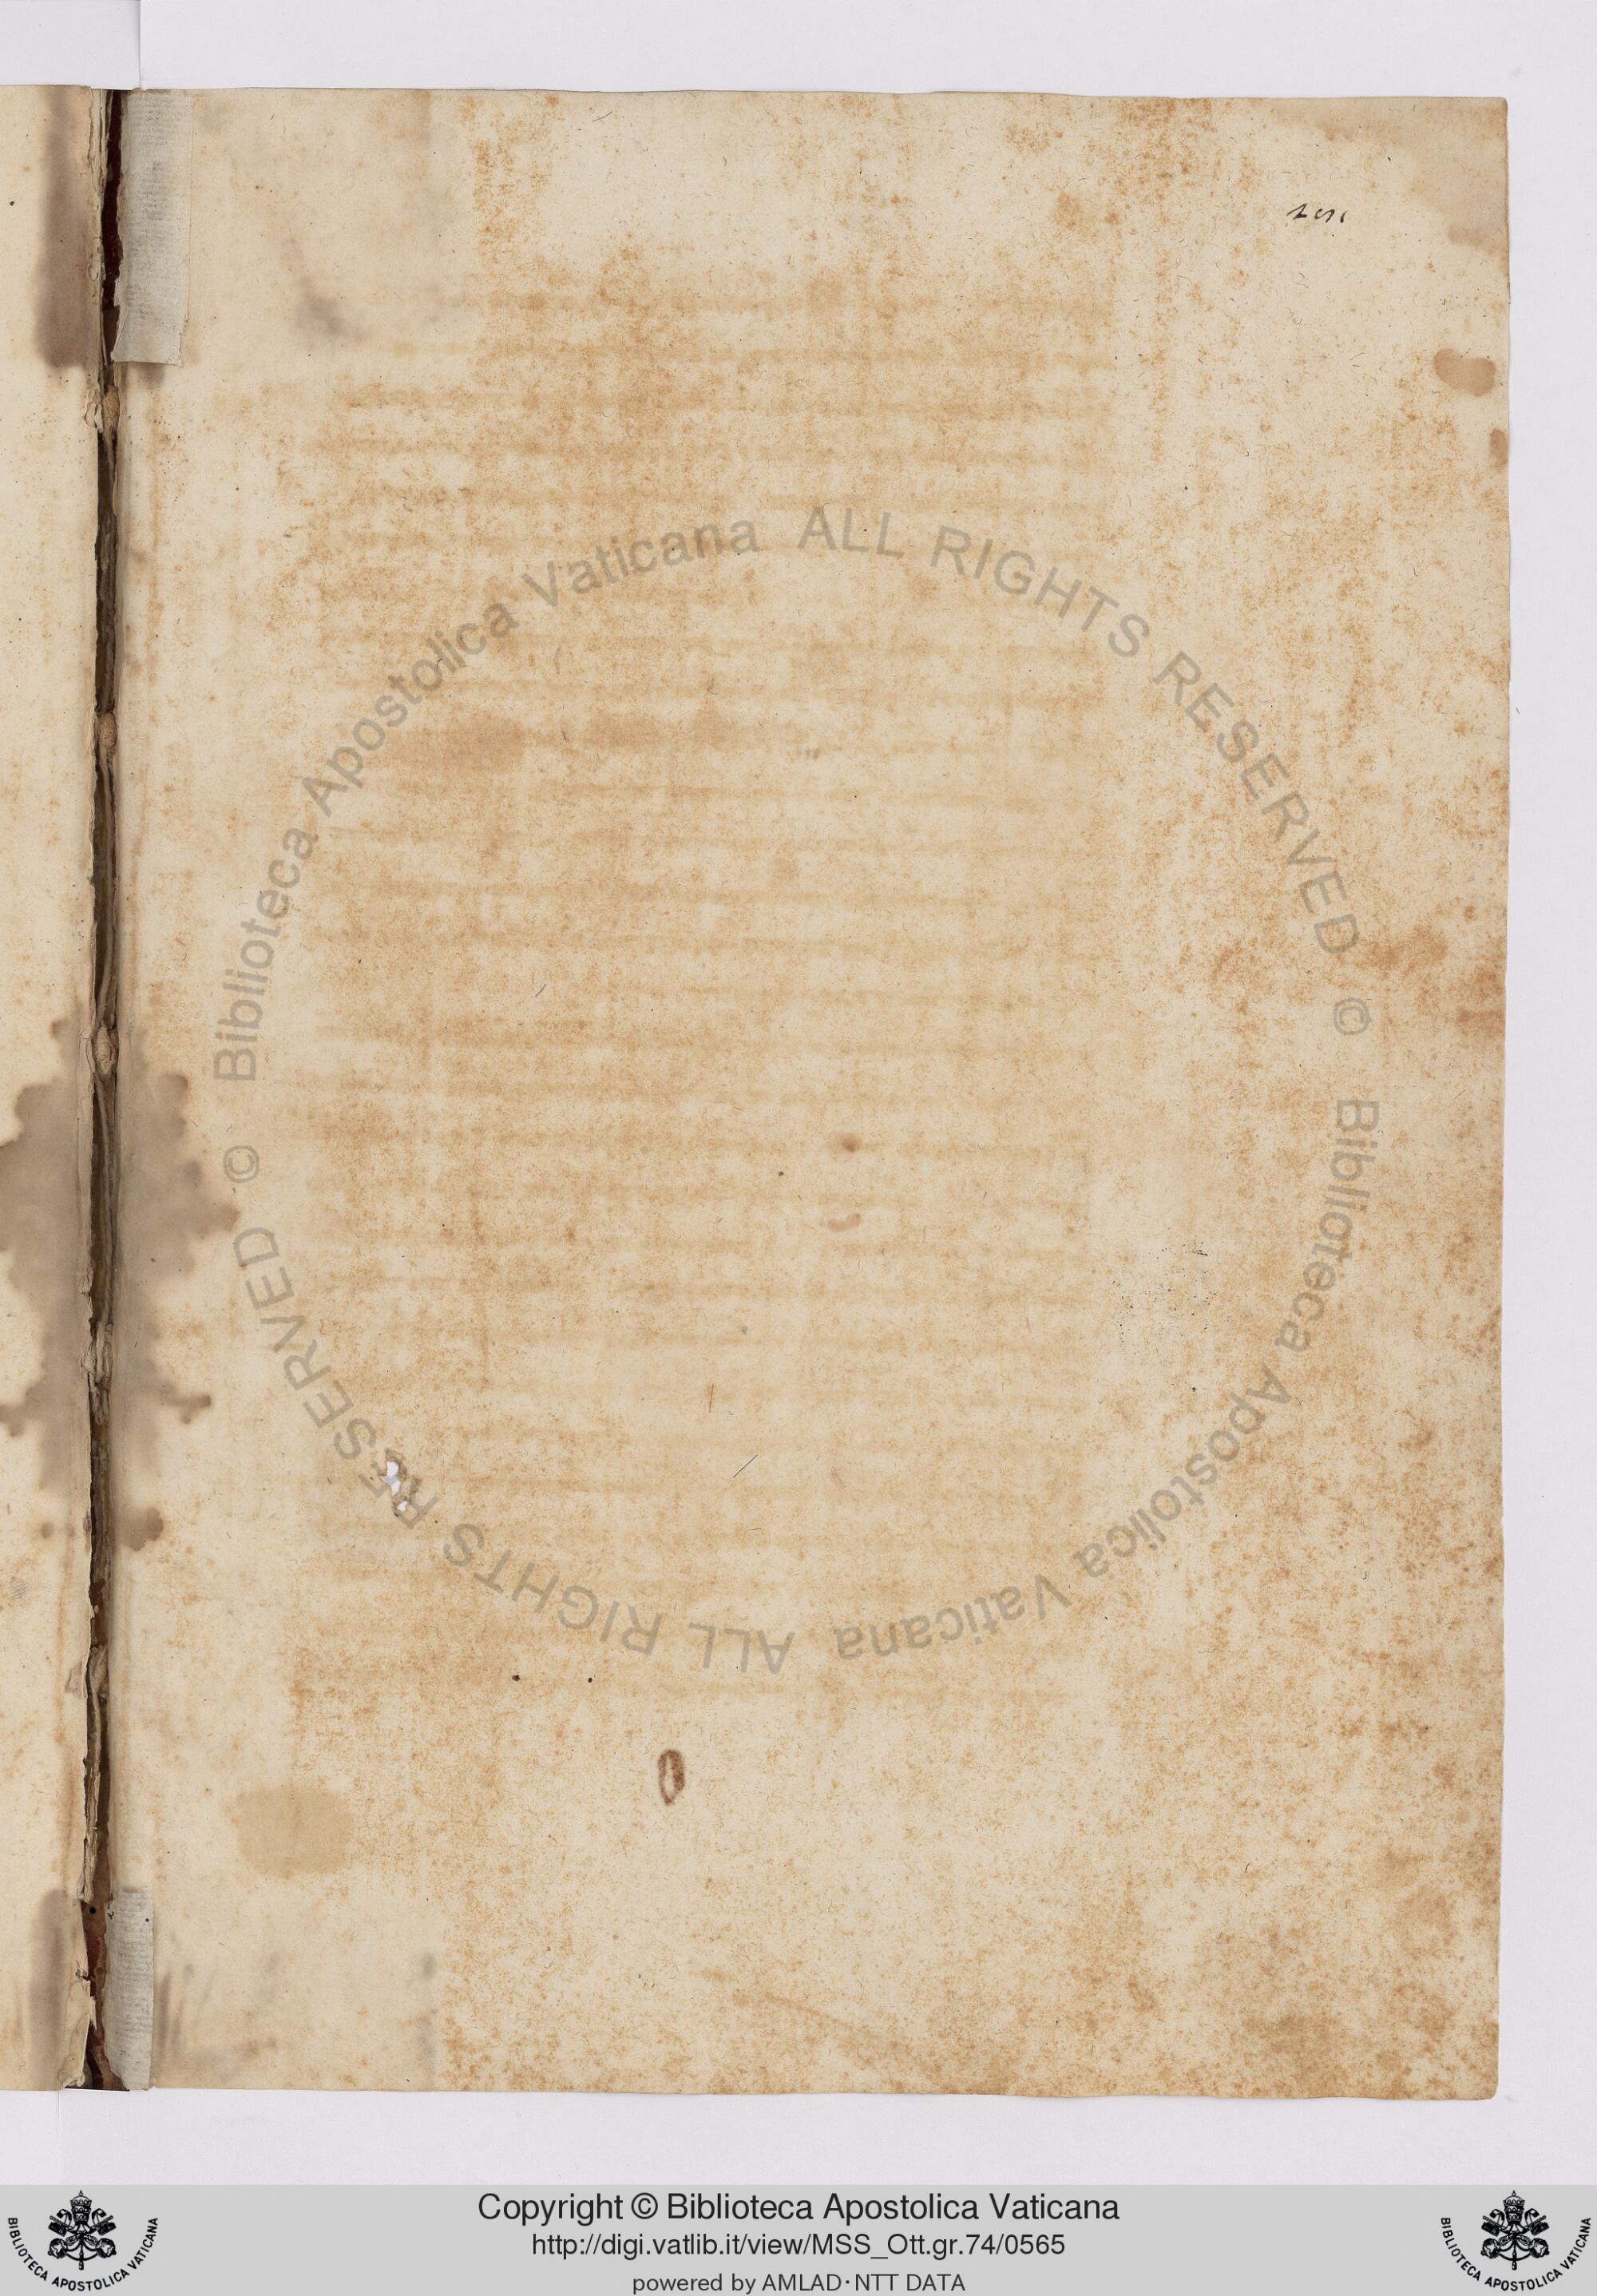 Biblioteca Apostolica Vaticana ALL RIGHTS RESERVED ©
Biblioteca Apostolica Vaticana ALL RIGHTS RESERVED ©
Copyright © Biblioteca Apostolica Vaticana
http://digi.vatlib.it/view/MSS_Ott.gr.74/0565
powered by AMLAD·NTT DATA
BIBLIOTECA APOSTOLICA VATICANA
BIBLIOTECA APOSTOLICA VATICANA